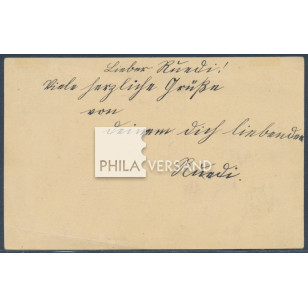 Lieber Ruedi!
Viele herzliche Grüße
von
deinem dich liebenden
PHILA VERSAND
Ruedi.